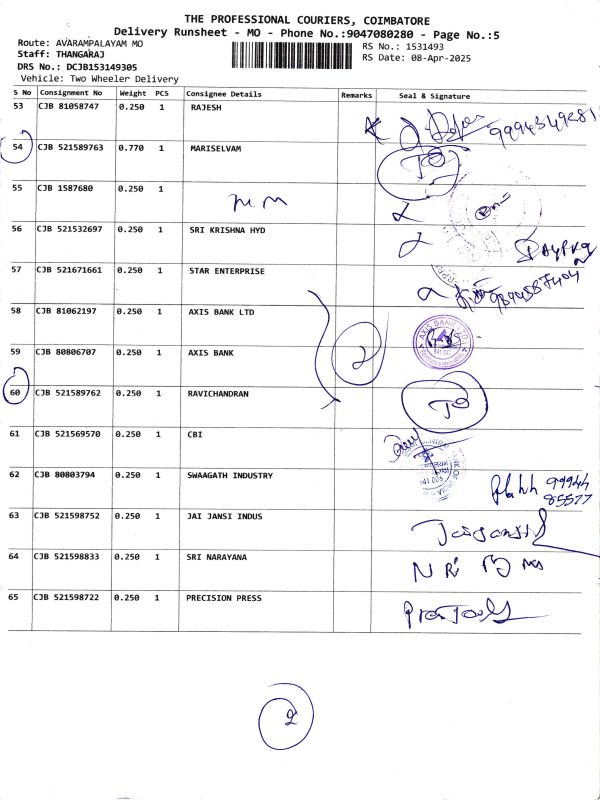 THE PROFESSIONAL COURIERS, COIMBATORE
Delivery Runsheet - MO - Phone No.:9047080280 - Page No.:5
Route: AVARAMPALAYAM MO
Staff: THANGARAJ
DRS No.: DCJB153149305
Vehicle: Two Wheeler Delivery
RS No.: 1531493
RS Date: 08-Apr-2025
S No Consignment No Weight PCS Consignee Details Remarks Seal & Signature
53 CJB 81058747 0.250 1 RAJESH
54 CJB 521589763 0.770 1 MARISELVAM
55 CJB 1587680 0.250 1
56 CJB 521532697 0.250 1 SRI KRISHNA HYD
57 CJB 521671661 0.250 1 STAR ENTERPRISE
58 CJB 81062197 0.250 1 AXIS BANK LTD AXIS BANK LTD
59 CJB 80806707 0.250 1 AXIS BANK 2
60 CJB 521589762 0.250 1 RAVICHANDRAN
61 CJB 521569570 0.250 1 CBI
62 CJB 80803794 0.250 1 SWAAGATH INDUSTRY 99944
85577
63 CJB 521598752 0.250 1 JAI JANSI INDUS
64 CJB 521598833 0.250 1 SRI NARAYANA
65 CJB 521598722 0.250 1 PRECISION PRESS
2